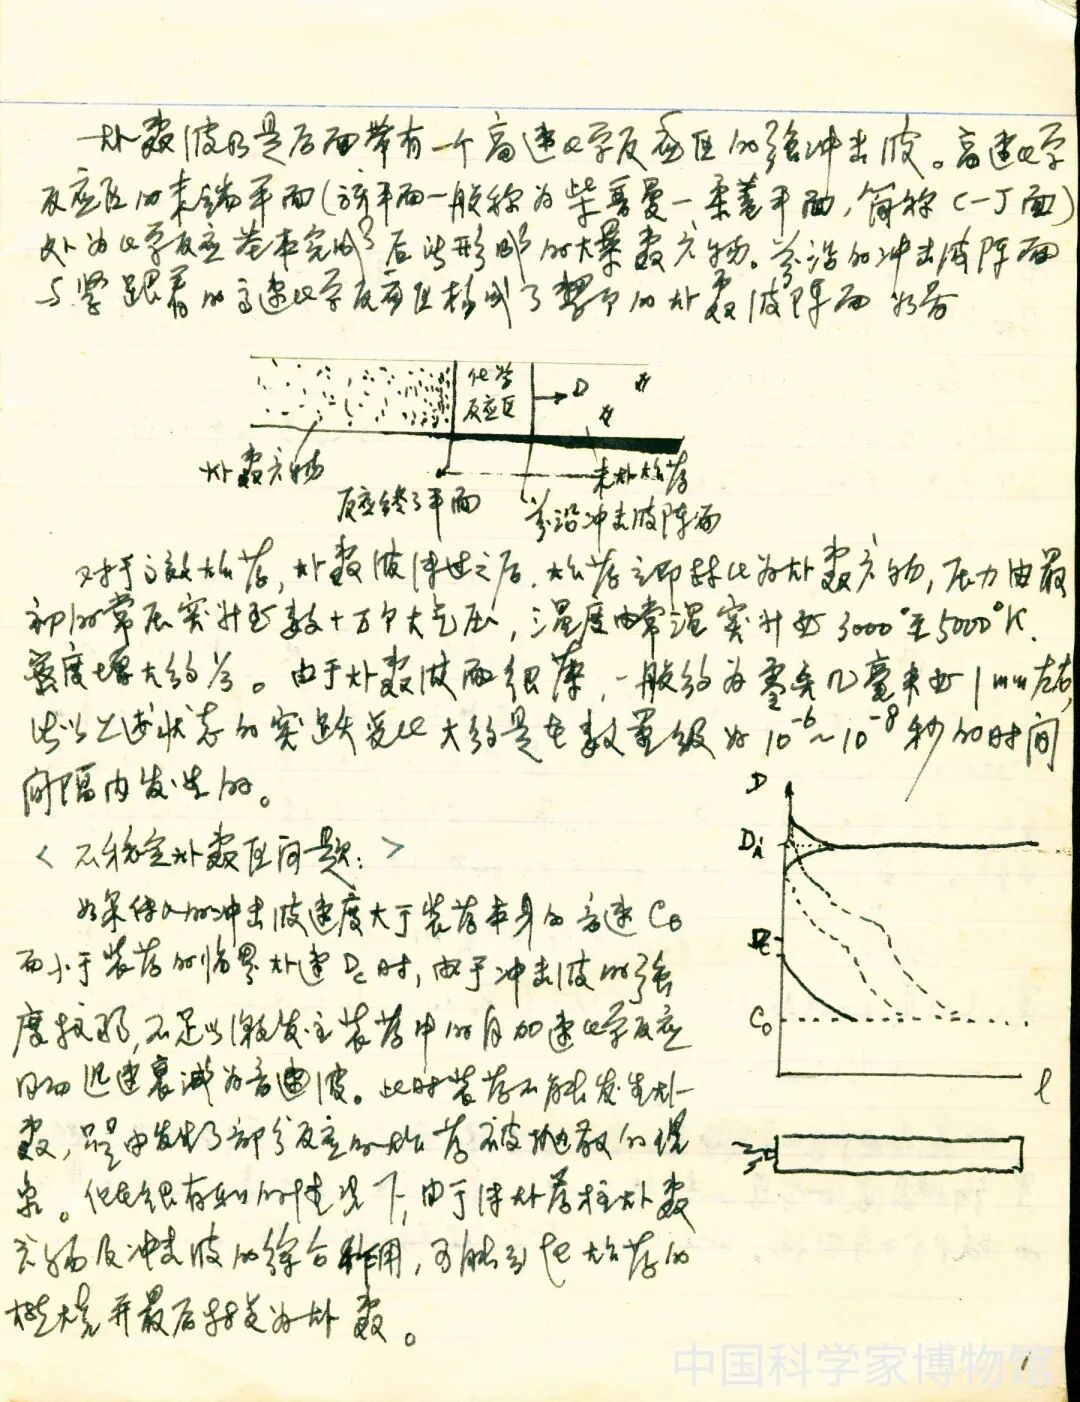 爆轰波乃是后面带有一个高速化学反应区的强冲击波。高速化学
反应区的末端平面(该平面一般称为柴普曼一柔盖平面,简称C—J面)
处为化学反应基本完成了后所形成的爆轰产物。前沿的冲击波阵面
与紧跟着的高速化学反应区构成了整个的爆轰波阵面 如音
化学
反应区
D
炸
药
爆轰产物
未爆炸药
反应终了平面
前沿冲击波阵面
对于高效炸药,爆轰波传过之后,炸药立即转化为爆轰产物,压力由最
初的常压突升至数十万个大气压,温度由常温突升至3000°至5000°K.
密度增大约 。由于爆轰波面很薄,一般约为零点几毫米至1mm左右,
所以上述状态的突跃变化大约是在数量级为10⁻⁶~10⁻⁸秒的时间
间隔内发生的。
<不稳定爆轰区问题:>
如果传入的冲击波速度大于装药本身的音速C₀
而小于装药的临界爆速Dc时,由于冲击波的强
度较弱,不足以激发主装药中的自加速化学反应
因而迅速衰减为音速波。此时装药不能发生爆
轰,只是由发生了部分反应的炸药被抛散的现
象。但在很有利的情况下,由于传爆药柱爆轰
产物及冲击波的综合作用,可能引起炸药的
燃烧并最后转变为爆轰。
D
Di
Dc
C₀
l
1
中国科学家博物馆